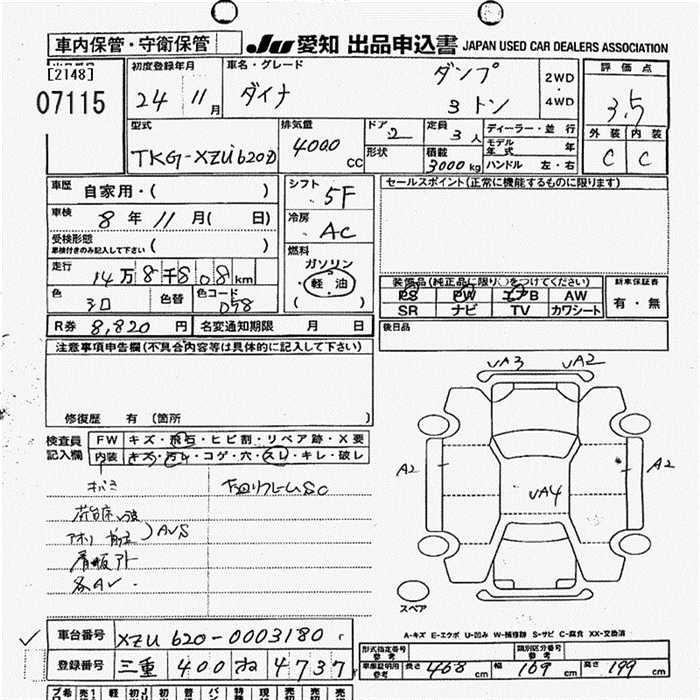 車内保管・守衛保管
JU 愛知 出品申込書 JAPAN USED CAR DEALERS ASSOCIATION
[2148]
07115
初度登録年月
24 11月
車名・グレード
ダイナ
ダンプ
3トン
2WD
・
4WD
評価点
3.5
外装 内装
C C
型式
TKG-XZU620D
排気量
4000 CC
ドア
2
形状
定員
3人
積載
3000kg
ディーラー・並行
モデル年式 年
ハンドル 左・右
車歴 自家用・( )
車検 8年 11月( 日)
受検形態
車検付きのみ記入して下さい ( )
走行 14万8千808km
色 シロ 色替 色コード 058
R券 8,820円 名変通知期限 月 日
シフト
5F
冷房
AC
燃料
ガソリン
軽油
( )
セールスポイント(正常に機能するものに限ります)
装備品(純正品に限り○をつけてください)
PS PW エアB AW
SR ナビ TV カワシート
新車保証書
有・無
後日品
注意事項申告欄(不具合内容等は具体的に記入して下さい)
修復歴 有(箇所 )
検査員記入欄
FW キズ・飛石・ヒビ割・リペア跡・X要
内装 キズ・汚れ・コゲ・穴・スレ・キレ・破レ
下回りフレームSC
看板アト
各AV.
UA3 UA2
A2 A2
UA4
スペア
A-キズ E-エクボ U-凹み W-補修跡 S-サビ C-腐食 XX-交換済
車台番号 XZU620-0003180
登録番号 三重 400 ね 4737
形式指定番号 参考
類別区分番号 参考
車庫証明用 参考 長さ 468cm 幅 169cm 高さ 199cm